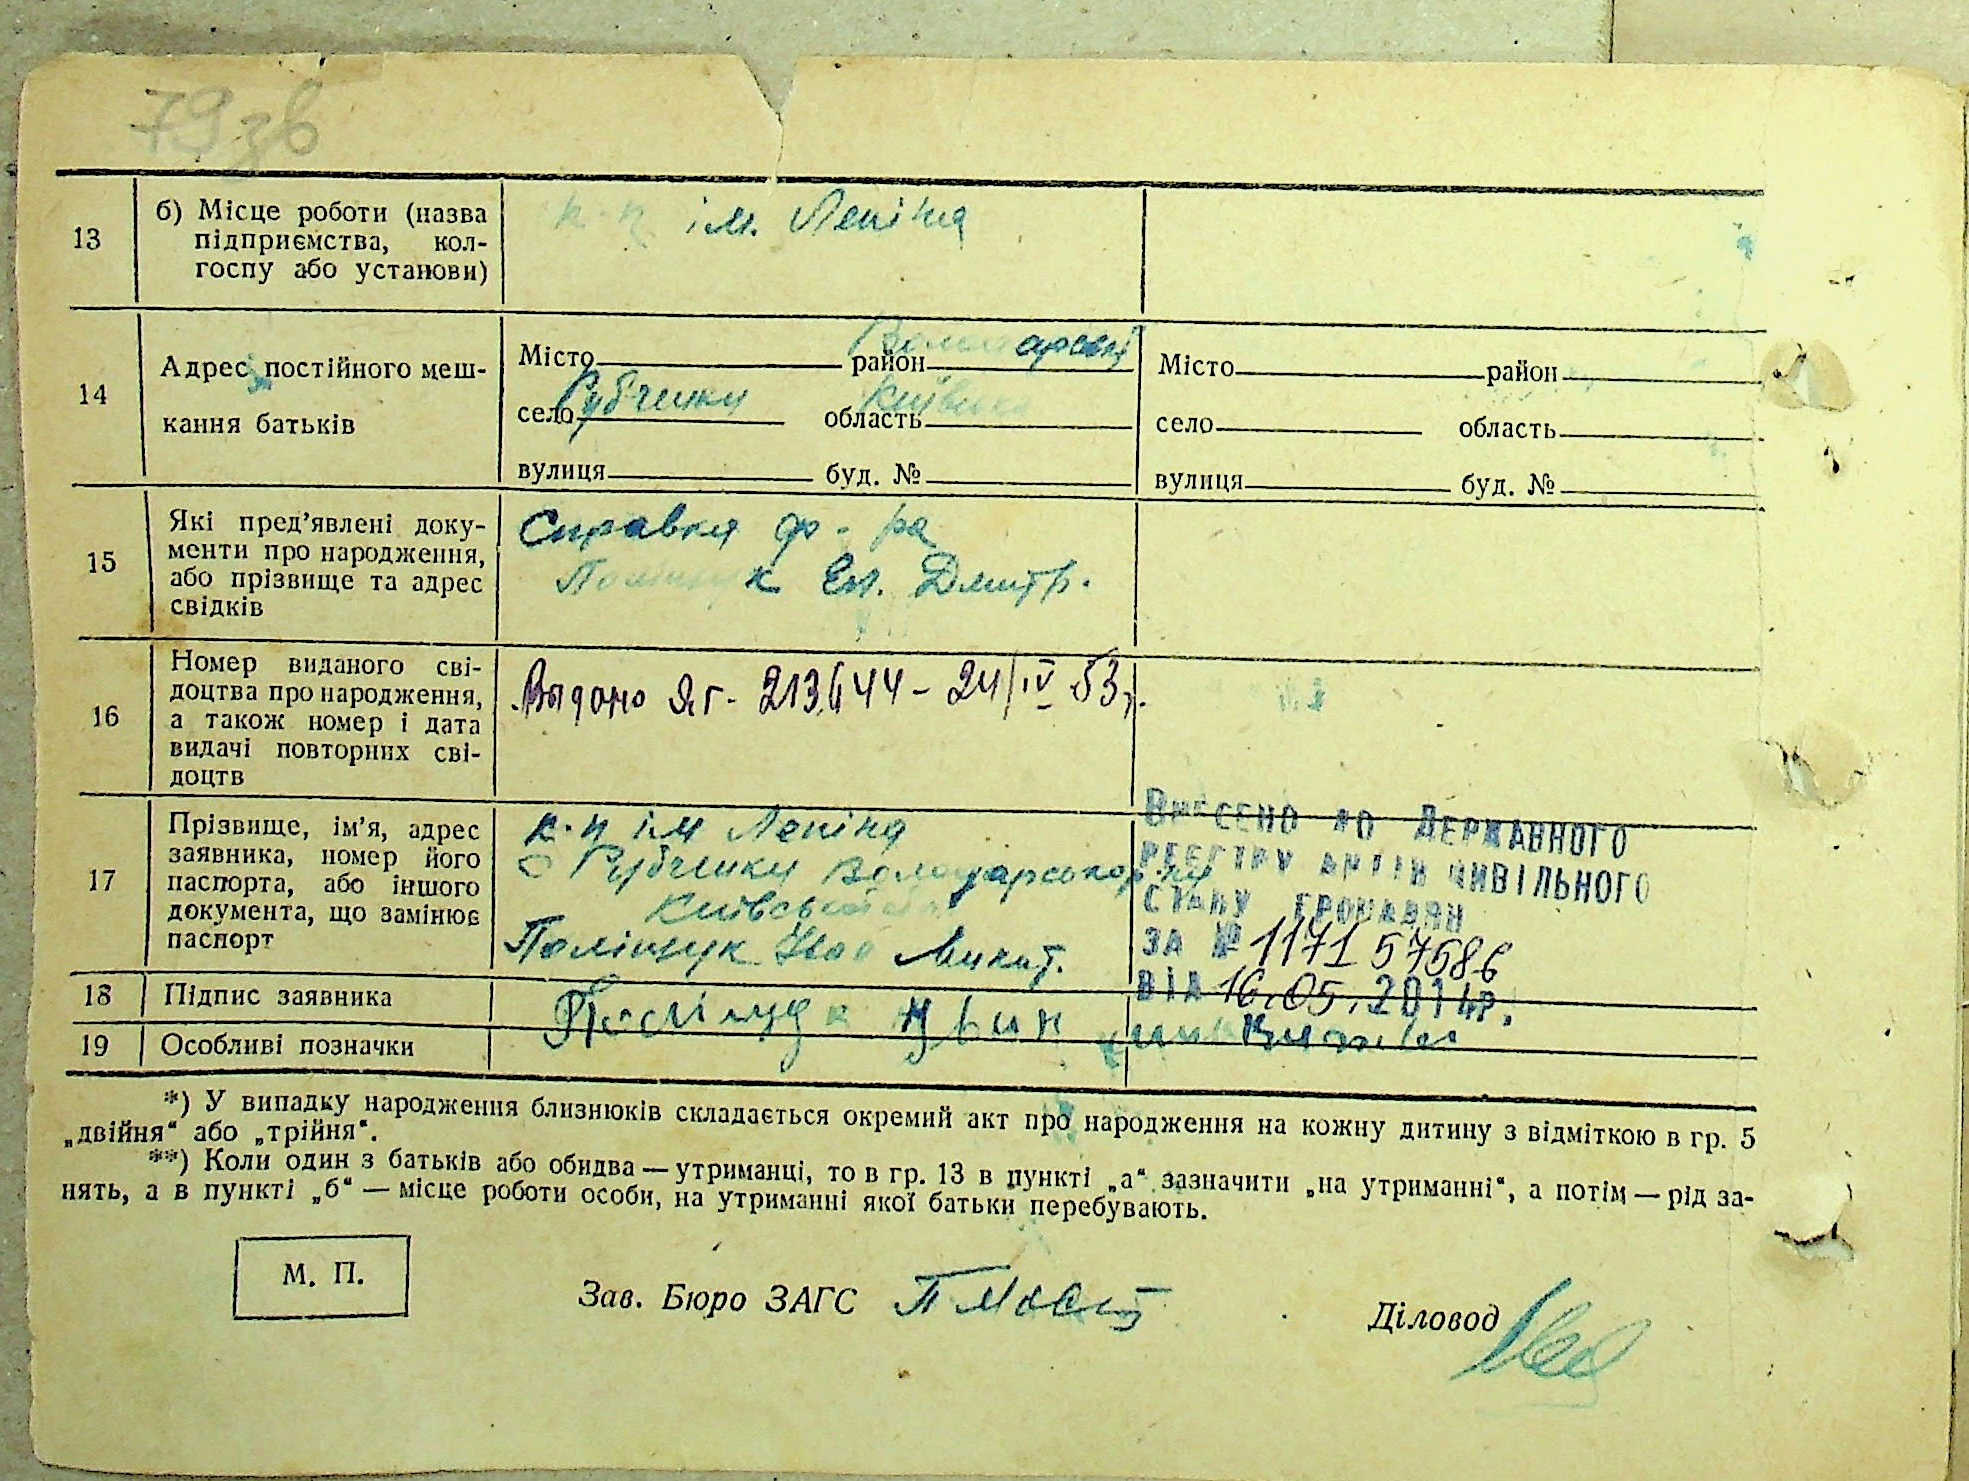 79зв
13
б) Місце роботи (назва
підприємства, кол-
госпу або установи)
к-п ім. Леніна
14
Адрес постійного меш-
кання батьків
Місто район Володарський
село Рубченки область Київська
вулиця буд. №
Місто район
село область
вулиця буд. №
15
Які пред’явлені доку-
менти про народження,
або прізвище та адрес
свідків
Справка ф-ра
Поліщук Ел. Дмитр.
16
Номер виданого сві-
доцтва про народження,
а також номер і дата
видачі повторних сві-
доцтв
Видано Яг- 213644 - 24/IV 53г.
17
Прізвище, ім’я, адрес
заявника, номер його
паспорта, або іншого
документа, що замінює
паспорт
к-п ім Леніна
с Рубченки Володарського р-ну
Київської
Поліщук Микит.
Внесено до Державного
реєстру актів цивільного
стану громадян
за № 1171 57586
від 16.05.2014р.
18
Підпис заявника
Поліщук
19
Особливі позначки
*) У випадку народження близнюків складається окремий акт про народження на кожну дитину з відміткою в гр. 5
„двійня“ або „трійня“.
**) Коли один з батьків або обидва — утриманці, то в гр. 13 в пункті „а“ зазначити „на утриманні“, а потім — рід за-
нять, а в пункті „б“ — місце роботи особи, на утриманні якої батьки перебувають.
М. П.
Зав. Бюро ЗАГС
Діловод